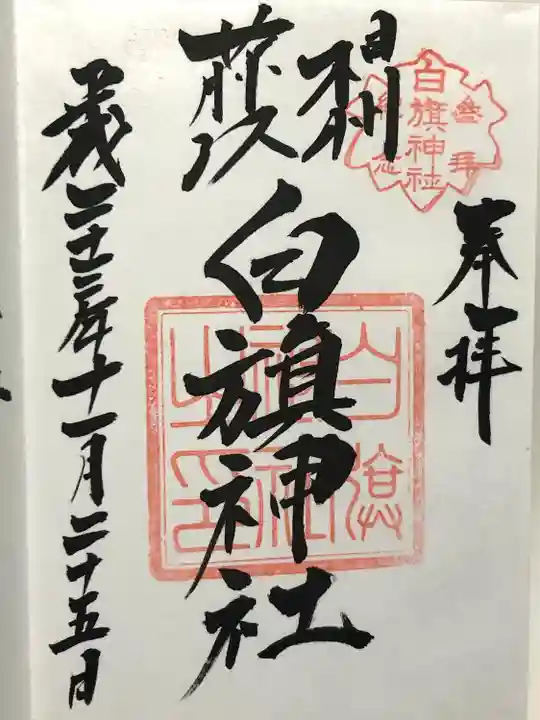 奉拝
參拜
白旗神社
紀念
相州
藤沢
白旗神社
白旗神社之印
平成二十三年十一月二十五日